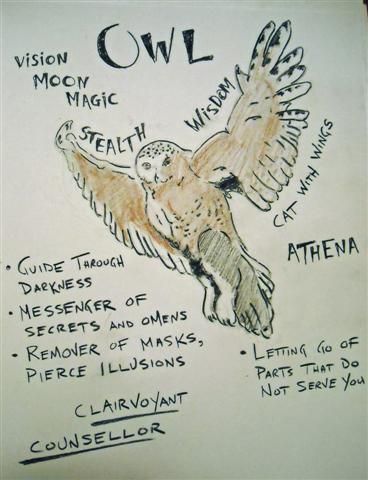 OWL
VISION
MOON
MAGIC
STEALTH
WISDOM
CAT WITH WINGS
ATHENA
• GUIDE THROUGH
DARKNESS
• MESSENGER OF
SECRETS AND OMENS
• REMOVER OF MASKS,
PIERCE ILLUSIONS
• LETTING GO OF
PARTS THAT DO
NOT SERVE YOU
CLAIRVOYANT
COUNSELLOR